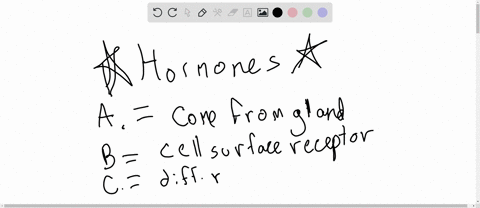 Hormones
A. = Come from gland
B = cell surface receptor
C. = diff. r